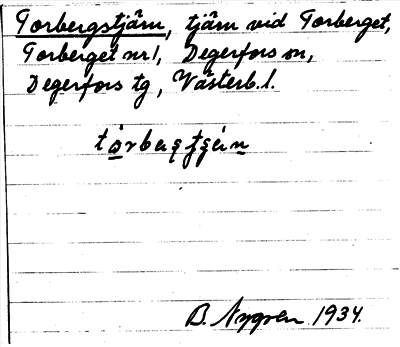 Torbergstjärn, tjärn vid Torberget,
Torberget nr 1, Degerfors sn,
Degerfors tg, Västerb. l.
B. Nygren 1934.